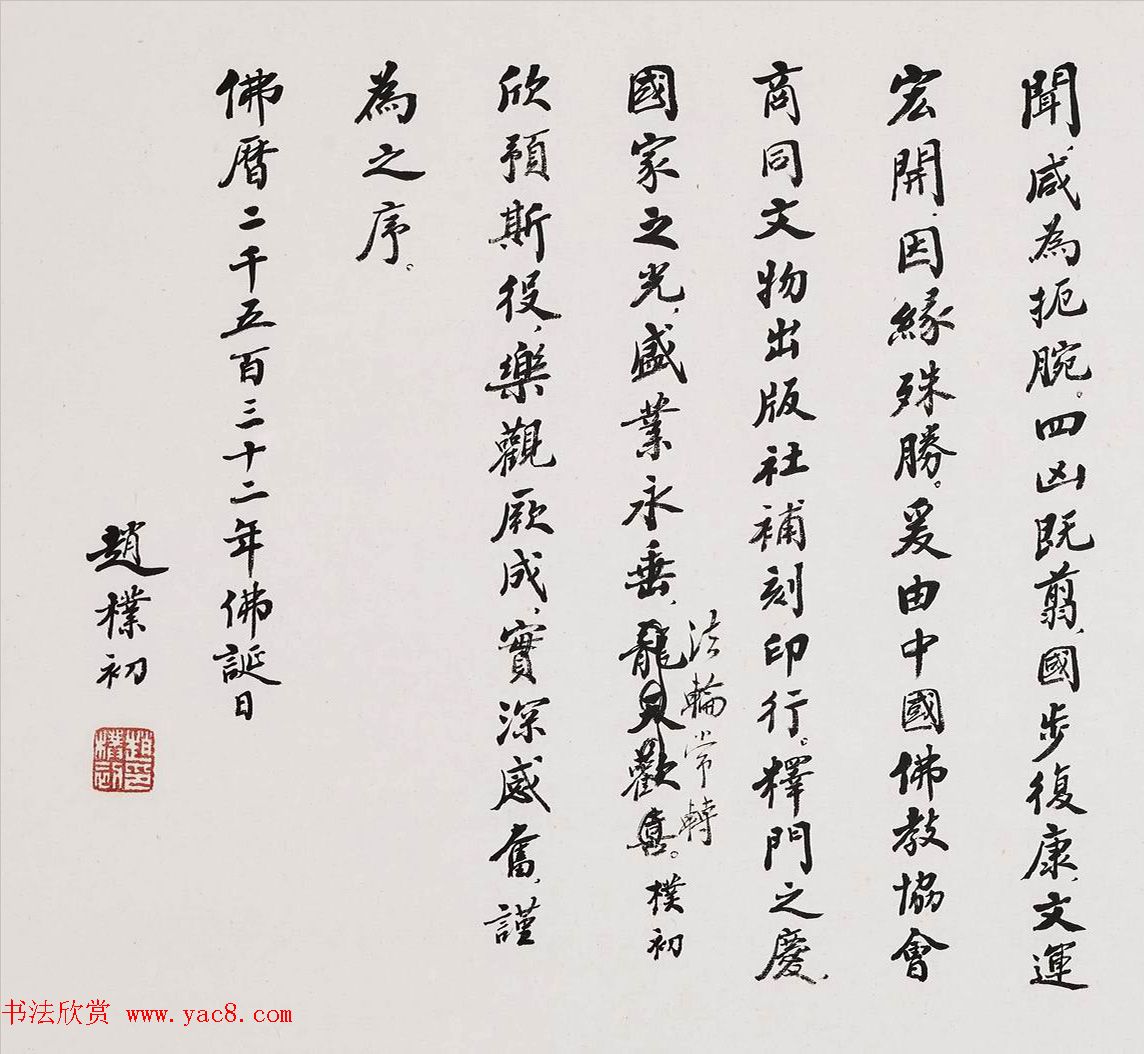 聞、咸為扼腕。四凶既翦、國步復康、文運
宏開、因緣殊勝。爰由中國佛教協會
商同文物出版社補刻印行。釋門之慶、
法輪常轉
國家之光、盛業永垂、龍天歡喜。樸初
欣預斯役、樂觀厥成、實深感奮、謹
為之序。
佛曆二千五百三十二年佛誕日
趙樸初
趙樸初印
书法欣赏 www.yac8.com